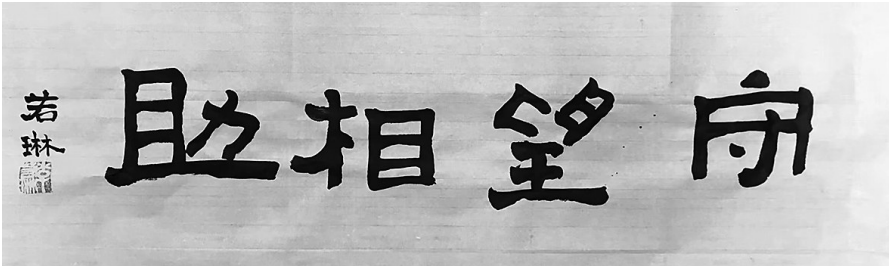 守望相助
若琳